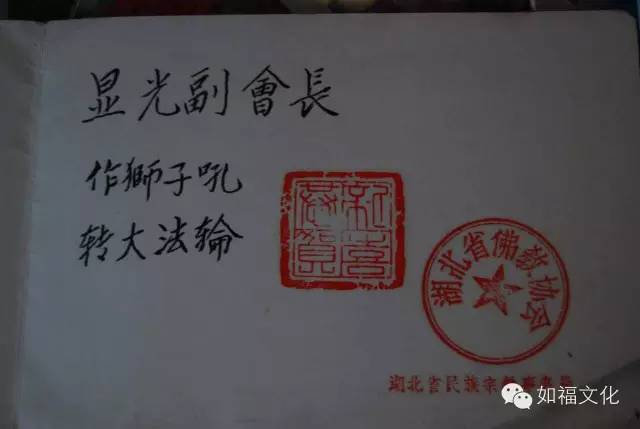 显光副會長
作獅子吼
转大法輪
新喜
恭賀
湖北省佛教协会
湖北省民族宗教事務
如福文化